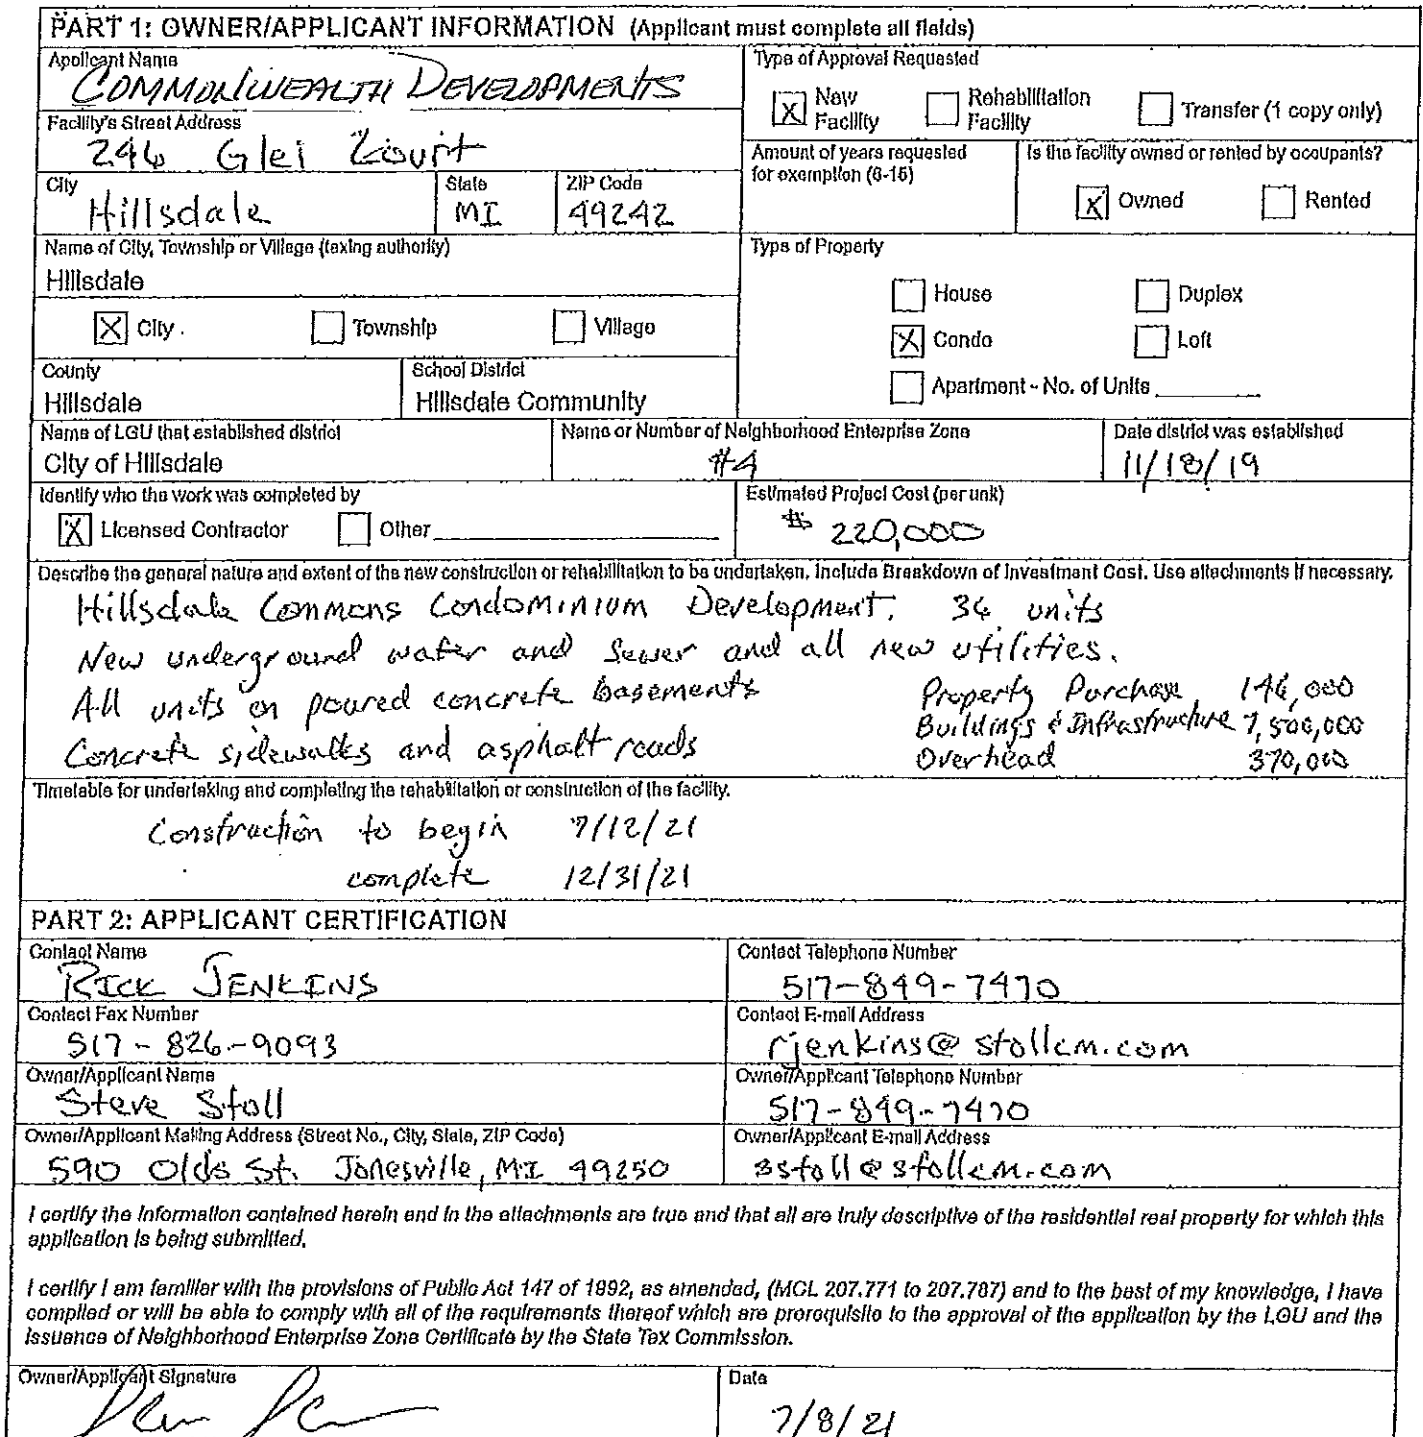 PART 1: OWNER/APPLICANT INFORMATION (Applicant must complete all fields)
Applicant Name
COMMONWEALTH DEVELOPMENTS
Type of Approval Requested
X New Facility
Rehabilitation Facility
Transfer (1 copy only)
Facility's Street Address
246 Glei Court
Amount of years requested for exemption (6-15)
Is the facility owned or rented by occupants?
X Owned
Rented
City
Hillsdale
State
MI
ZIP Code
49242
Name of City, Township or Village (taxing authority)
Hillsdale
X City
Township
Village
Type of Property
House
Duplex
X Condo
Loft
Apartment - No. of Units
County
Hillsdale
School District
Hillsdale Community
Name of LGU that established district
City of Hillsdale
Name or Number of Neighborhood Enterprise Zone
#4
Date district was established
11/18/19
Identify who the work was completed by
X Licensed Contractor
Other
Estimated Project Cost (per unit)
$ 220,000
Describe the general nature and extent of the new construction or rehabilitation to be undertaken. Include Breakdown of Investment Cost. Use attachments if necessary.
Hillsdale Commons Condominium Development. 36 units
New underground water and sewer and all new utilities.
All units on poured concrete basements
Concrete sidewalks and asphalt roads
Property Purchase 146,000
Buildings & Infrastructure 7,500,000
Overhead 370,000
Timetable for undertaking and completing the rehabilitation or construction of the facility.
Construction to begin 7/12/21
complete 12/31/21
PART 2: APPLICANT CERTIFICATION
Contact Name
RICK JENKINS
Contact Telephone Number
517-849-7470
Contact Fax Number
517-826-9093
Contact E-mail Address
rjenkins@stollcm.com
Owner/Applicant Name
Steve Stoll
Owner/Applicant Telephone Number
517-849-7470
Owner/Applicant Mailing Address (Street No., City, State, ZIP Code)
590 Olds St. Jonesville, MI 49250
Owner/Applicant E-mail Address
sstoll@stollcm.com
I certify the information contained herein and in the attachments are true and that all are truly descriptive of the residential real property for which this
application is being submitted.
I certify I am familiar with the provisions of Public Act 147 of 1992, as amended, (MCL 207.771 to 207.787) and to the best of my knowledge, I have
complied or will be able to comply with all of the requirements thereof which are prerequisite to the approval of the application by the LGU and the
issuance of Neighborhood Enterprise Zone Certificate by the State Tax Commission.
Owner/Applicant Signature
Date
7/8/21